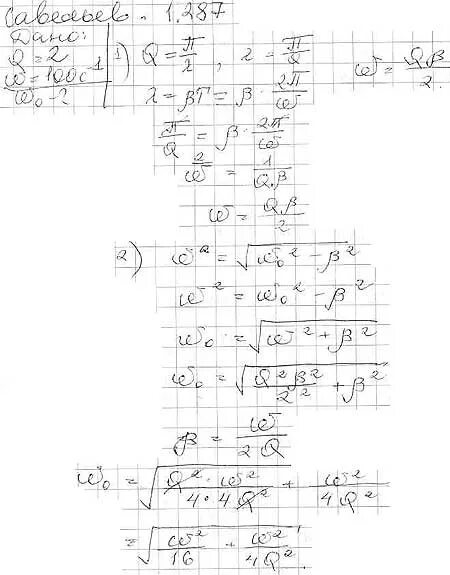 Савельев. 1.287
Дано:
Q = 2
ω = 100 с⁻¹
ω₀ - ?
1) Q = π/λ, λ = π/Q
ω = Qβ/2.
λ = βT = β · 2π/ω
π/Q = β · 2π/ω
2/ω = 1/Qβ
ω = Qβ/2
2) ω² = √(ω₀² − β²)
ω² = ω₀² − β²
ω₀ = √(ω² + β²)
ω₀ = √(Q²β²/2² + β²)
β = ω/2Q
ω₀ = √(Q² · ω²/4·4Q² + ω²/4Q²
= √(ω²/16 + ω²/4Q²).